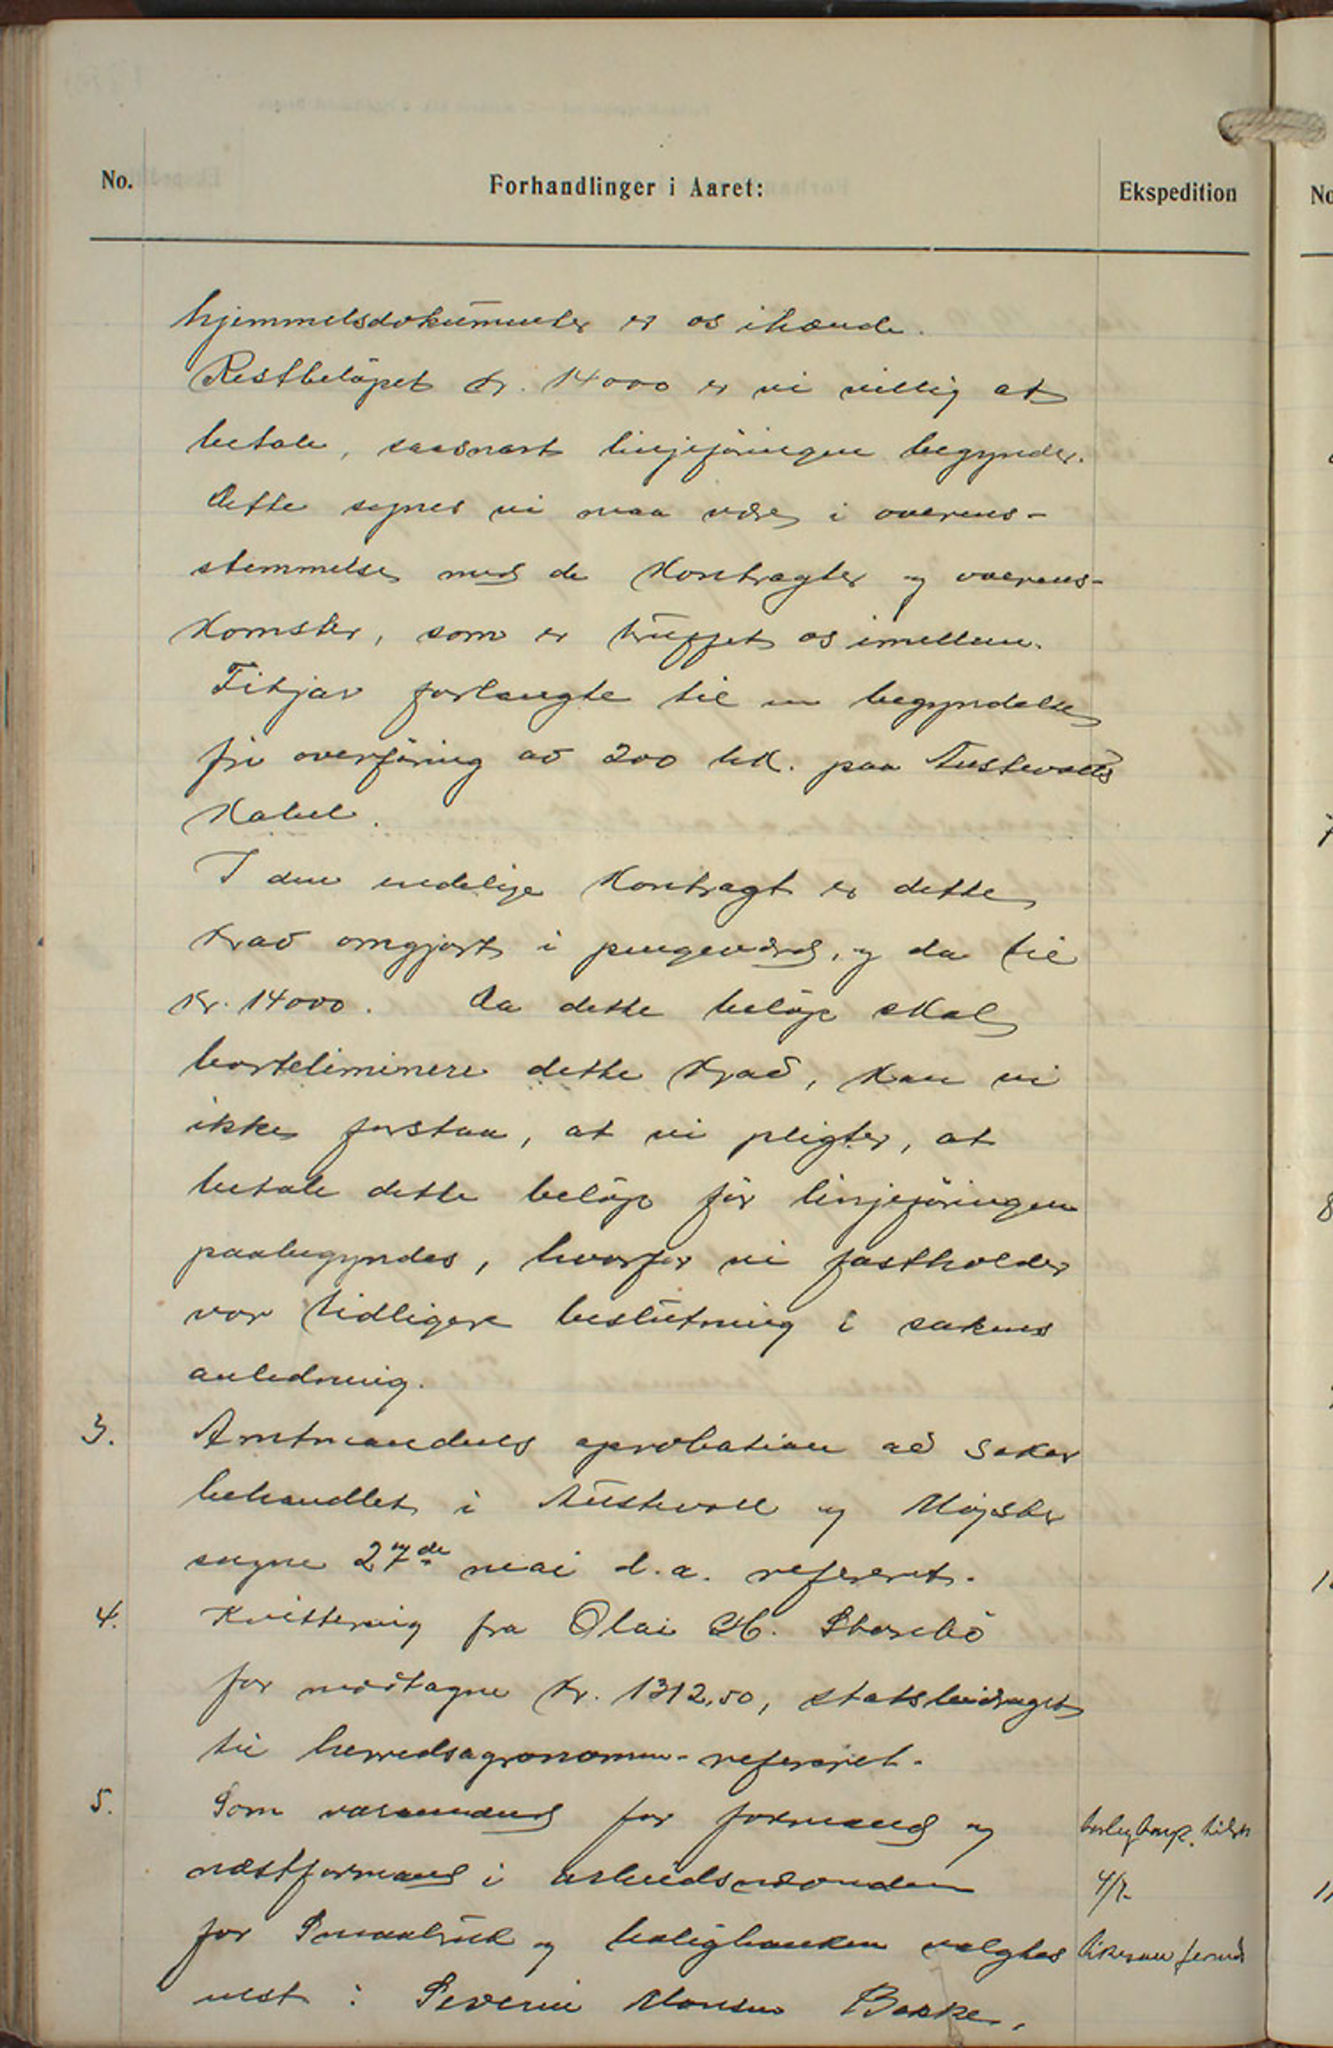 No.
Forhandlinger i Aaret:
Ekspedition
hjemmelsdokumenter er os ihænde.
Restbeløpet kr. 14000 er vi villig at
betale, saasnart linjeføringen begynder.
Dette synes vi maa være i overens-
stemmelse med de kontragter og overens-
komster, som er truffet os imellem.
Fitjar forlangte til en begyndelse
fri overføring av 200 hk. paa Austevolls
kabel.
I den endelige kontragt er dette
krav omgjort i pengeværd, og da til
kr. 14000. Da dette beløp skal
borteliminere dette krav, kan vi
ikke forstaa, at vi pligter, at
betale dette beløp før linjeføringen
paabegyndes, hvorfor vi fastholder
vor tidligere beslutning i sakens
anledning.
3. Amtmandens aprobation av saker
behandlet i Austevoll og Møgster
sogne 27de mai d.a. referert.
4. Kvittering fra Olai H. Storebø
for mottagne kr. 1312,50, statsbidraget
til herredsagronomen referert.
5. Som varamænd for formand og
næstformand i arbeidsnævnden
for Småbruk og boligbanken valgtes
nest: Severin Monsen Bakke.
4/7